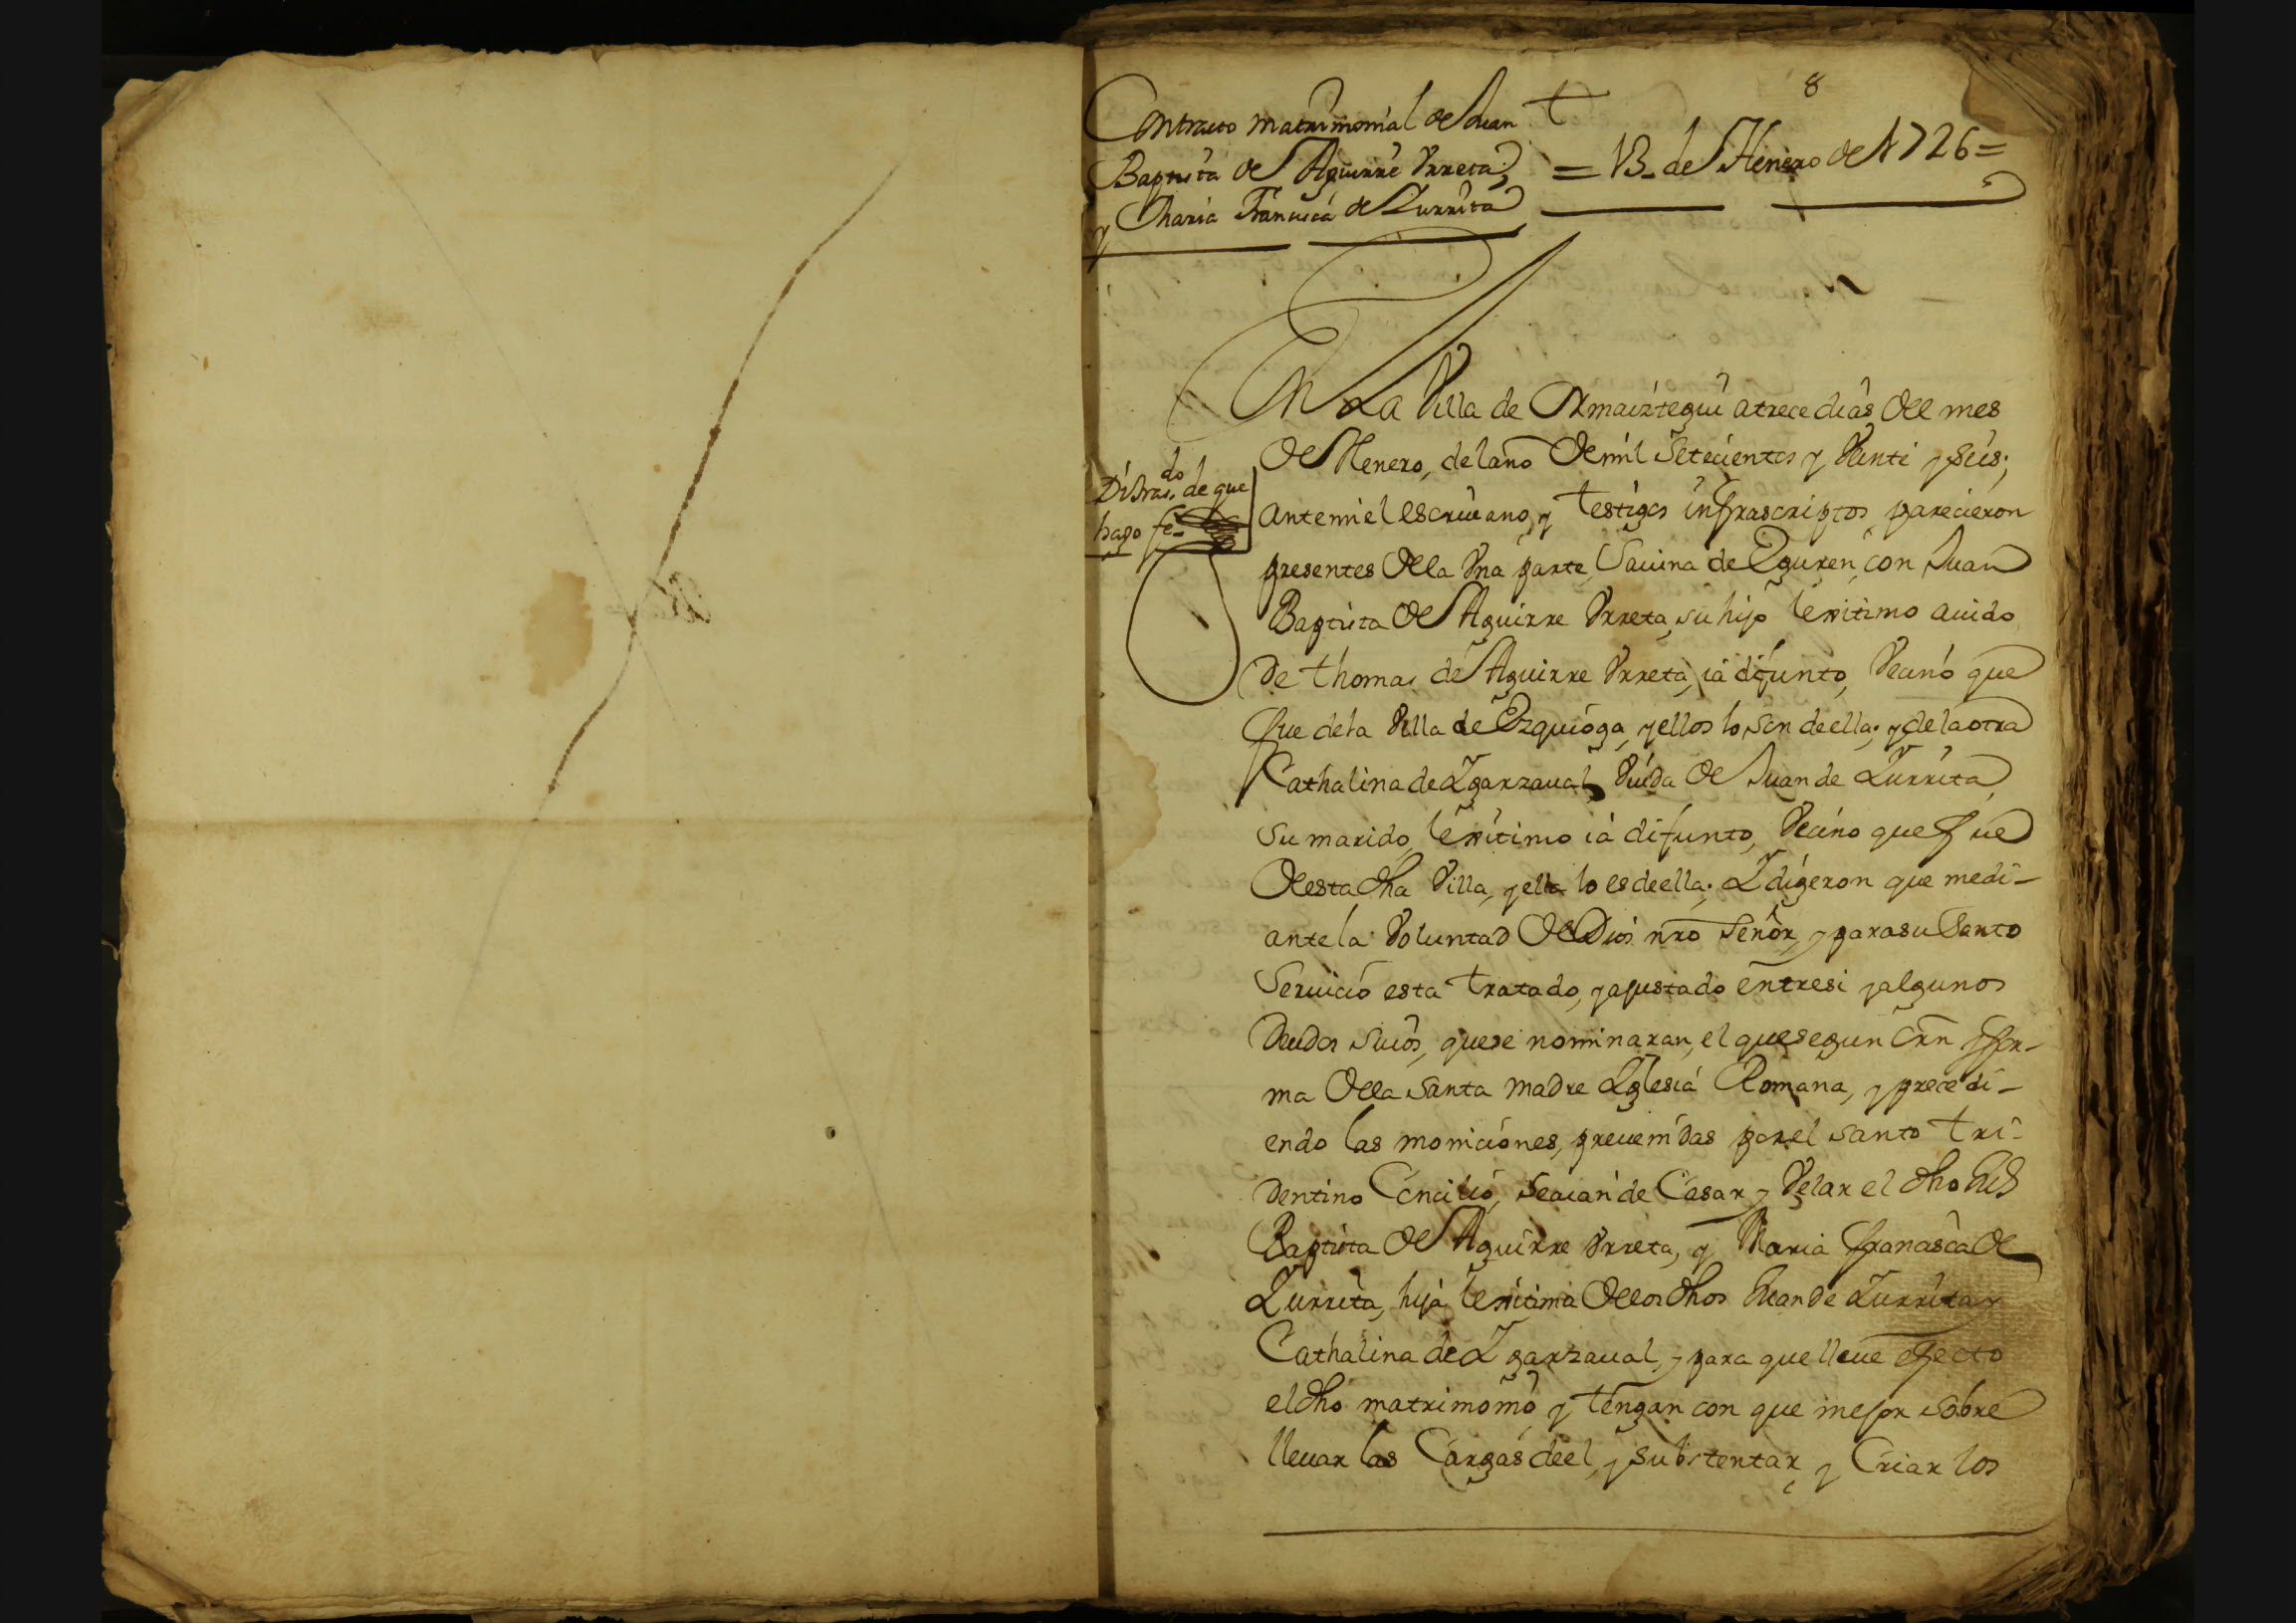 8
Contracto matrimonial de Juan
Baptista de Aguirre Vrreta,
y Maria Francisca de Zurrita
t
= 13 de Henero de 1726 =
En La Villa de Ormaiztegui a trece dias del mes
de Henero, del año de mil setecientos y Veinti y seis;
ante mi el escriuano, y testigos infrascriptos, parecieron
presentes de la Vna parte, Sauina de Eguren, con Juan
Baptista de Aguirre Vrreta, su hijo lexitimo auido
de thomas de Aguirre Vrreta, ia difunto, Vecino que
fue de la Villa de Ezquioga, y ellos lo son de ella; y de la otra
Cathalina de Ygarzaual, Viuda de Juan de Zurrita
su marido, lexitimo ia difunto, Vecino que fue
de esta dha Villa, y ella lo es de ella; Y digeron que medi-
ante la Voluntad de Dios nro señor, y para su santo
seruicio esta tratado, y ajustado entre si y algunos
deudos suios, que se nominaran, el que segun orn y for-
ma de la santa madre Yglesia Romana, y precedi-
endo las moniciones, preuenidas por el santo tri-
dentino Concilio, se aian de Casar y Velar el dho Juº
Baptista de Aguirre Vrreta, y Maria francisca de
Zurrita, hija lexitima de los dhos Juan de Zurrita y
Cathalina de Ygarzaual, y para que lleue efecto
el dho matrimonio y tengan con que mejor sobre
lleuar las Cargas de el, y substentar, y Criar los
Disras.do de que
hago fe-